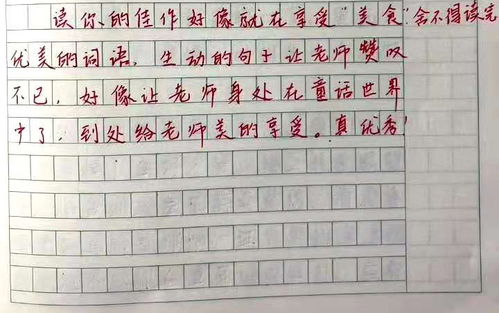 读你的佳作好像就在享受"美食"舍不得读完
优美的词语，生动的句子让老师赞叹
不已，好像让老师身处在童话世界
中了，到处给老师美的享受。真优秀！